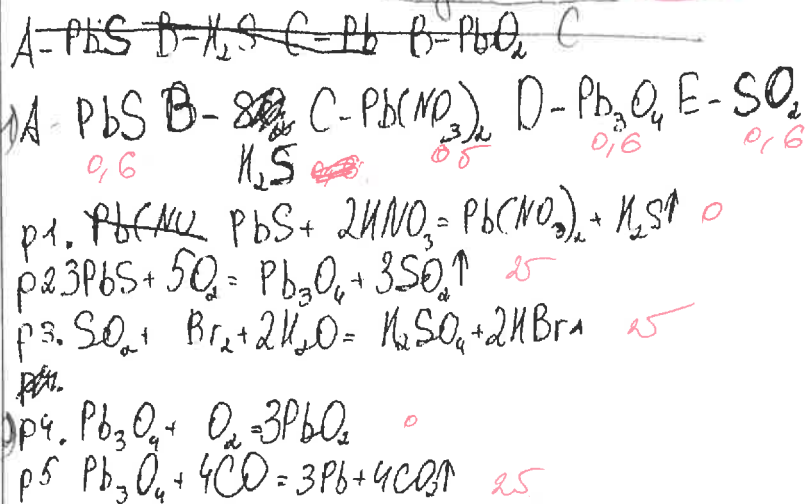 A - PbS B - H₂S C - Pb B - PbO₂ C
1) A PbS B - SO₂ C - Pb(NO₃)₂ D - Pb₃O₄ E - SO₂
0,6 H₂S 0,5 0,6 0,6
р1. Pb(NO PbS + 2HNO₃ = Pb(NO₃)₂ + H₂S↑ 0
р2 3PbS + 5O₂ = Pb₃O₄ + 3SO₂↑ 2б
р3. SO₂ + Br₂ + 2H₂O = H₂SO₄ + 2HBr 2б
р4.
р4. Pb₃O₄ + O₂ = 3PbO₂ 0
р5 Pb₃O₄ + 4CO = 3Pb + 4CO₂↑ 2б